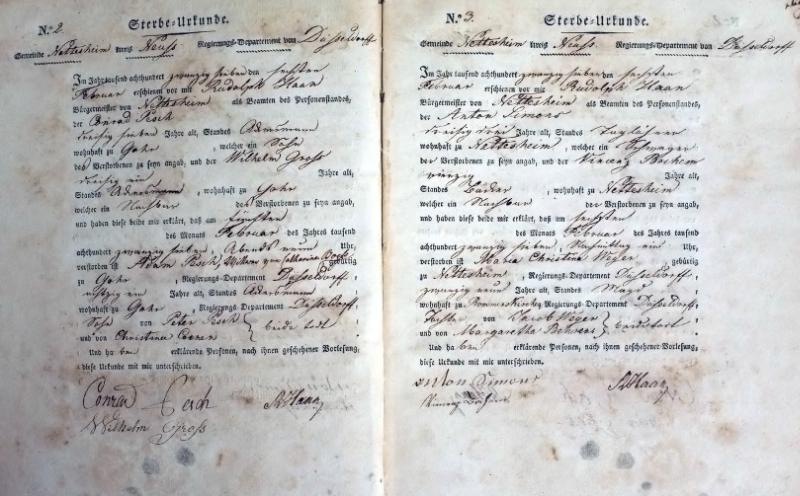 N.º 2.
Sterbe-Urkunde.
Gemeinde Nettesheim Kreis Neuss Regierungs-Departement von Düsseldorff
Im Jahr tausend achthundert zwanzig sieben den sechsten
Februar erschienen vor mir Rudolph Haan
Bürgermeister von Nettesheim als Beamten des Personenstandes,
der Conrad Pesch
dreisig sieben Jahre alt, Standes Ackersmann
wohnhaft zu Gohr, welcher ein Sohn
des Verstorbenen zu seyn angab, und der Wilhelm Gross
dreisig ein Jahre alt,
Standes Ackersmann, wohnhaft zu Gohr
welcher ein Nachbar des Verstorbenen zu seyn angab,
und haben diese beide mir erklärt, daß am fünften
des Monats Februar des Jahres tausend
achthundert zwanzig sieben Abends neun Uhr,
verstorben ist Adam Pesch, Wittwer von Catharina gebürtig
zu Gohr, Regierungs-Departement Düsseldorff,
ein Jahre alt, Standes Ackersmann
wohnhaft zu Gohr, Regierungs-Departement Düsseldorff
Sohn von Peter Pesch
und von Christina beide todt.
Und haben erklärende Personen, nach ihnen geschehener Vorlesung,
diese Urkunde mit mir unterschrieben.
Conrad Pesch Haan
Wilhelm Gross
N.º 3.
Sterbe-Urkunde.
Gemeinde Nettesheim Kreis Neuss. Regierungs-Departement von Düsseldorff
Im Jahr tausend achthundert zwanzig sieben den sechsten
Februar erschienen vor mir Rudolph Haan
Bürgermeister von Nettesheim als Beamten des Personenstandes,
der Anton Simons
dreisig drei Jahre alt, Standes Taglöhner
wohnhaft zu Nettesheim, welcher ein Schwager
der Verstorbenen zu seyn angab, und der Vincenz
vierzig Jahre alt,
Standes Bäcker, wohnhaft zu Nettesheim
welcher ein Nachbar der Verstorbenen zu seyn angab,
und haben diese beide mir erklärt, daß am sechsten
des Monats Februar des Jahres tausend
achthundert zwanzig sieben, Nachmittag ein Uhr,
verstorben ist Maria Christina Weyer gebürtig
zu Nettesheim, Regierungs-Departement Düsseldorff,
zwanzig neun Jahre alt, Standes Magd
wohnhaft zu Rommerskirchen Regierungs-Departement Düsseldorff,
Tochter von Jacob Weyer
und von Margaretha beide todt.
Und haben erklärende Personen, nach ihnen geschehener Vorlesung,
diese Urkunde mit mir unterschrieben.
Anton Simons Haan